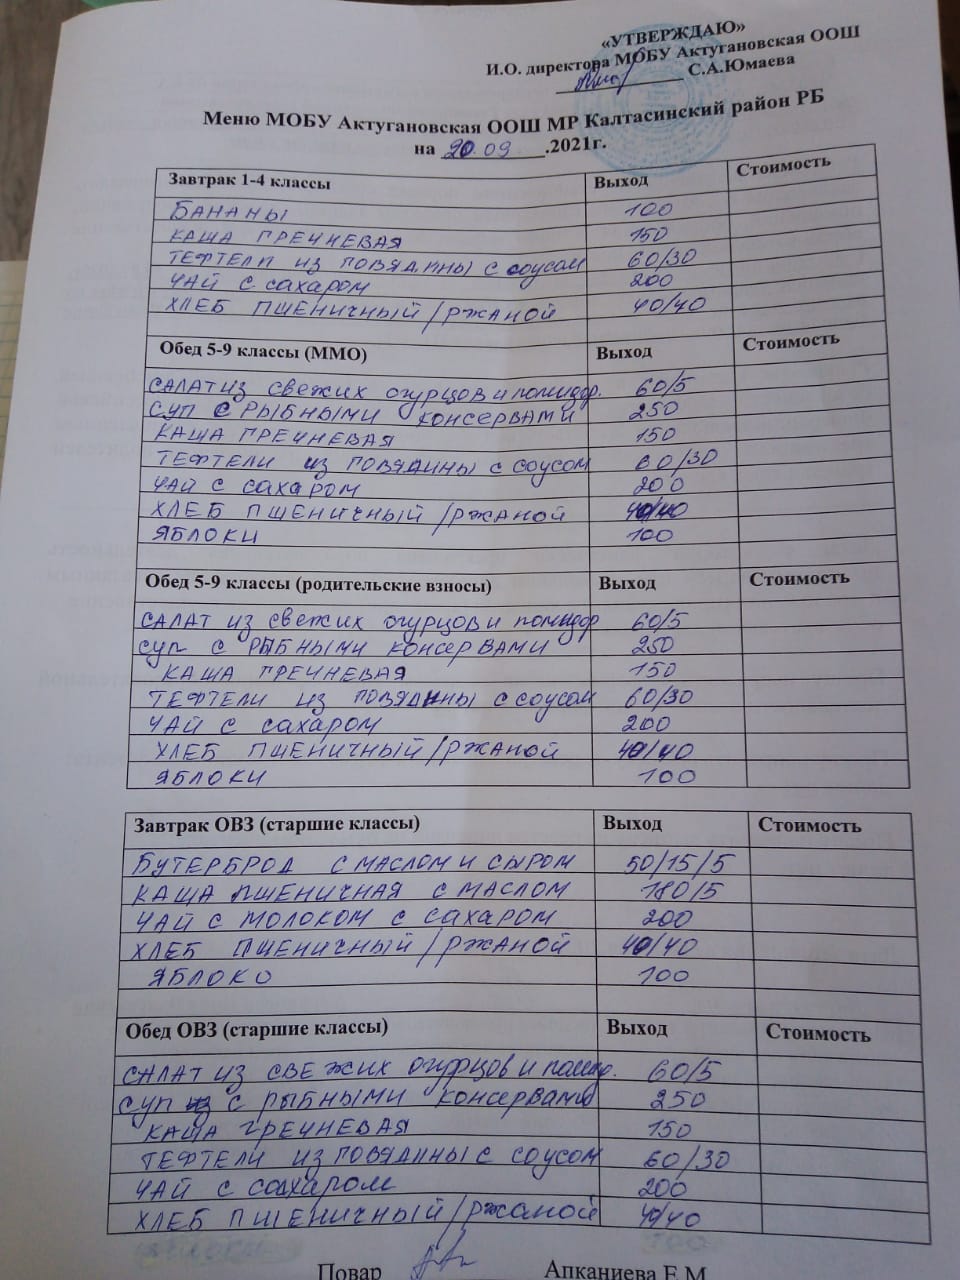 «УТВЕРЖДАЮ»
И.О. директора МОБУ Актугановская ООШ
С.А.Юмаева
Меню МОБУ Актугановская ООШ МР Калтасинский район РБ
на 20.09 .2021г.
Завтрак 1-4 классы Выход Стоимость
БАНАНЫ 100
КАША ГРЕЧНЕВАЯ 150
ТЕФТЕЛИ ИЗ ГОВЯДИНЫ С СОУСОМ 60/30
ЧАЙ С САХАРОМ 200
ХЛЕБ ПШЕНИЧНЫЙ/РЖАНОЙ 40/40
Обед 5-9 классы (ММО) Выход Стоимость
САЛАТ ИЗ СВЕЖИХ ОГУРЦОВ И ПОМИДОР. 60/5
СУП С РЫБНЫМИ КОНСЕРВАМИ 250
КАША ГРЕЧНЕВАЯ 150
ТЕФТЕЛИ ИЗ ГОВЯДИНЫ С СОУСОМ 60/30
ЧАЙ С САХАРОМ 200
ХЛЕБ ПШЕНИЧНЫЙ/РЖАНОЙ 40/40
ЯБЛОКИ 100
Обед 5-9 классы (родительские взносы) Выход Стоимость
САЛАТ ИЗ СВЕЖИХ ОГУРЦОВ И ПОМИДОР 60/5
СУП С РЫБНЫМИ КОНСЕРВАМИ 250
КАША ГРЕЧНЕВАЯ 150
ТЕФТЕЛИ ИЗ ГОВЯДИНЫ С СОУСОМ 60/30
ЧАЙ С САХАРОМ 200
ХЛЕБ ПШЕНИЧНЫЙ/РЖАНОЙ 40/40
ЯБЛОКИ 100
Завтрак ОВЗ (старшие классы) Выход Стоимость
БУТЕРБРОД С МАСЛОМ И СЫРОМ 50/15/5
КАША ПШЕНИЧНАЯ С МАСЛОМ 180/5
ЧАЙ С МОЛОКОМ С САХАРОМ 200
ХЛЕБ ПШЕНИЧНЫЙ/РЖАНОЙ 40/40
ЯБЛОКО 100
Обед ОВЗ (старшие классы) Выход Стоимость
САЛАТ ИЗ СВЕЖИХ ОГУРЦОВ И ПОМИД. 60/5
СУП С РЫБНЫМИ КОНСЕРВАМИ 250
КАША ГРЕЧНЕВАЯ 150
ТЕФТЕЛИ ИЗ ГОВЯДИНЫ С СОУСОМ 60/30
ЧАЙ С САХАРОМ 200
ХЛЕБ ПШЕНИЧНЫЙ/РЖАНОЙ 40/40
Повар Апканиева Е.М.